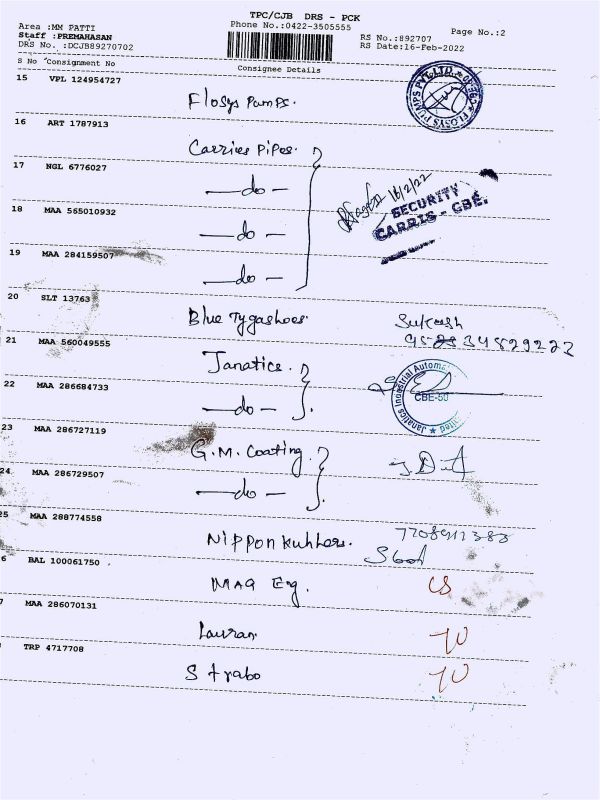 TPC/CJB DRS - PCK
Area :MM PATTI
Phone No.:0422-3505555
Page No.:2
Staff :PREMAHASAN
RS No.:892707
DRS No. :DCJB89270702
RS Date:16-Feb-2022
S No Consignment No
Consignee Details
15 VPL 124954727
Flosys Pumps.
FLOSYS PUMPS PVT LTD
16 ART 1787913
Carries Pipes.
17 NGL 6776027
—do—
16/2/22
SECURITY
CARRIS - CBE.
18 MAA 565010932
—do—
19 MAA 284159507
—do—
20 SLT 13763
Blue Tygashoes.
21 MAA 560049555
Janatics.
Janatics Industrial Automa
CBE-50
22 MAA 286684733
—do—
23 MAA 286727119
G.M. Coating
24 MAA 286729507
—do—
25 MAA 288774558
Nippon Kuhlers.
6 BAL 100061750
MAQ Eg.
7 MAA 286070131
Lauran
TRP 4717708
Strabo